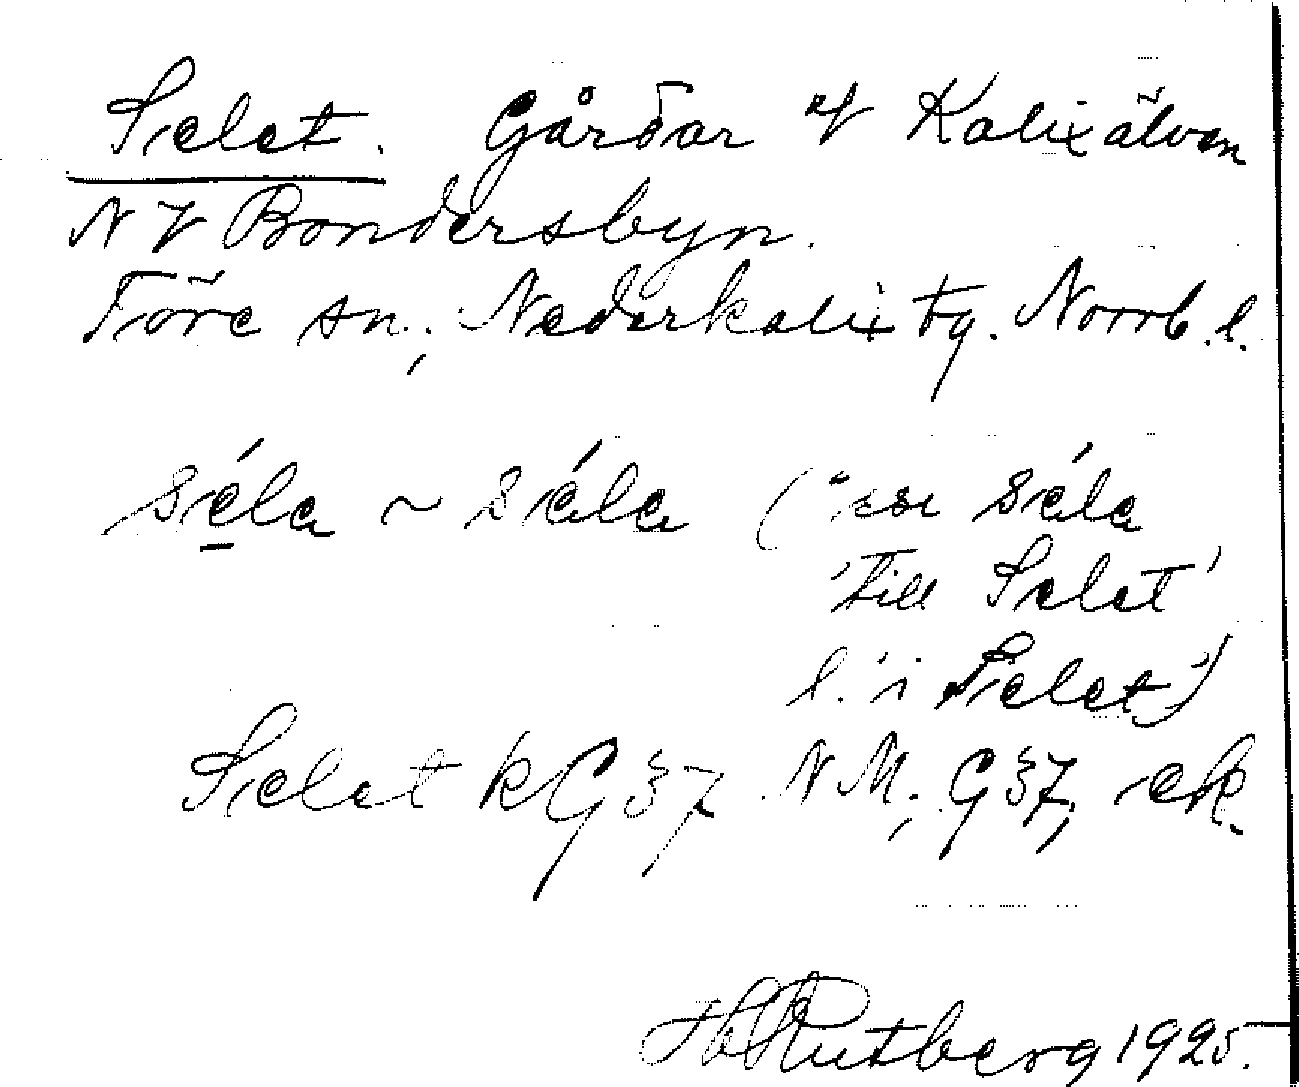 Selet. Gårdar v Kalixälven
N v Bondersbyn.
Töre sn; Nederkalix tg. Norrb. l.
séla ~ séla ( séla
'till Selet'
l. 'i Selet')
Selet k G 37 NM; G 37; ek.
H Rutberg 1925.